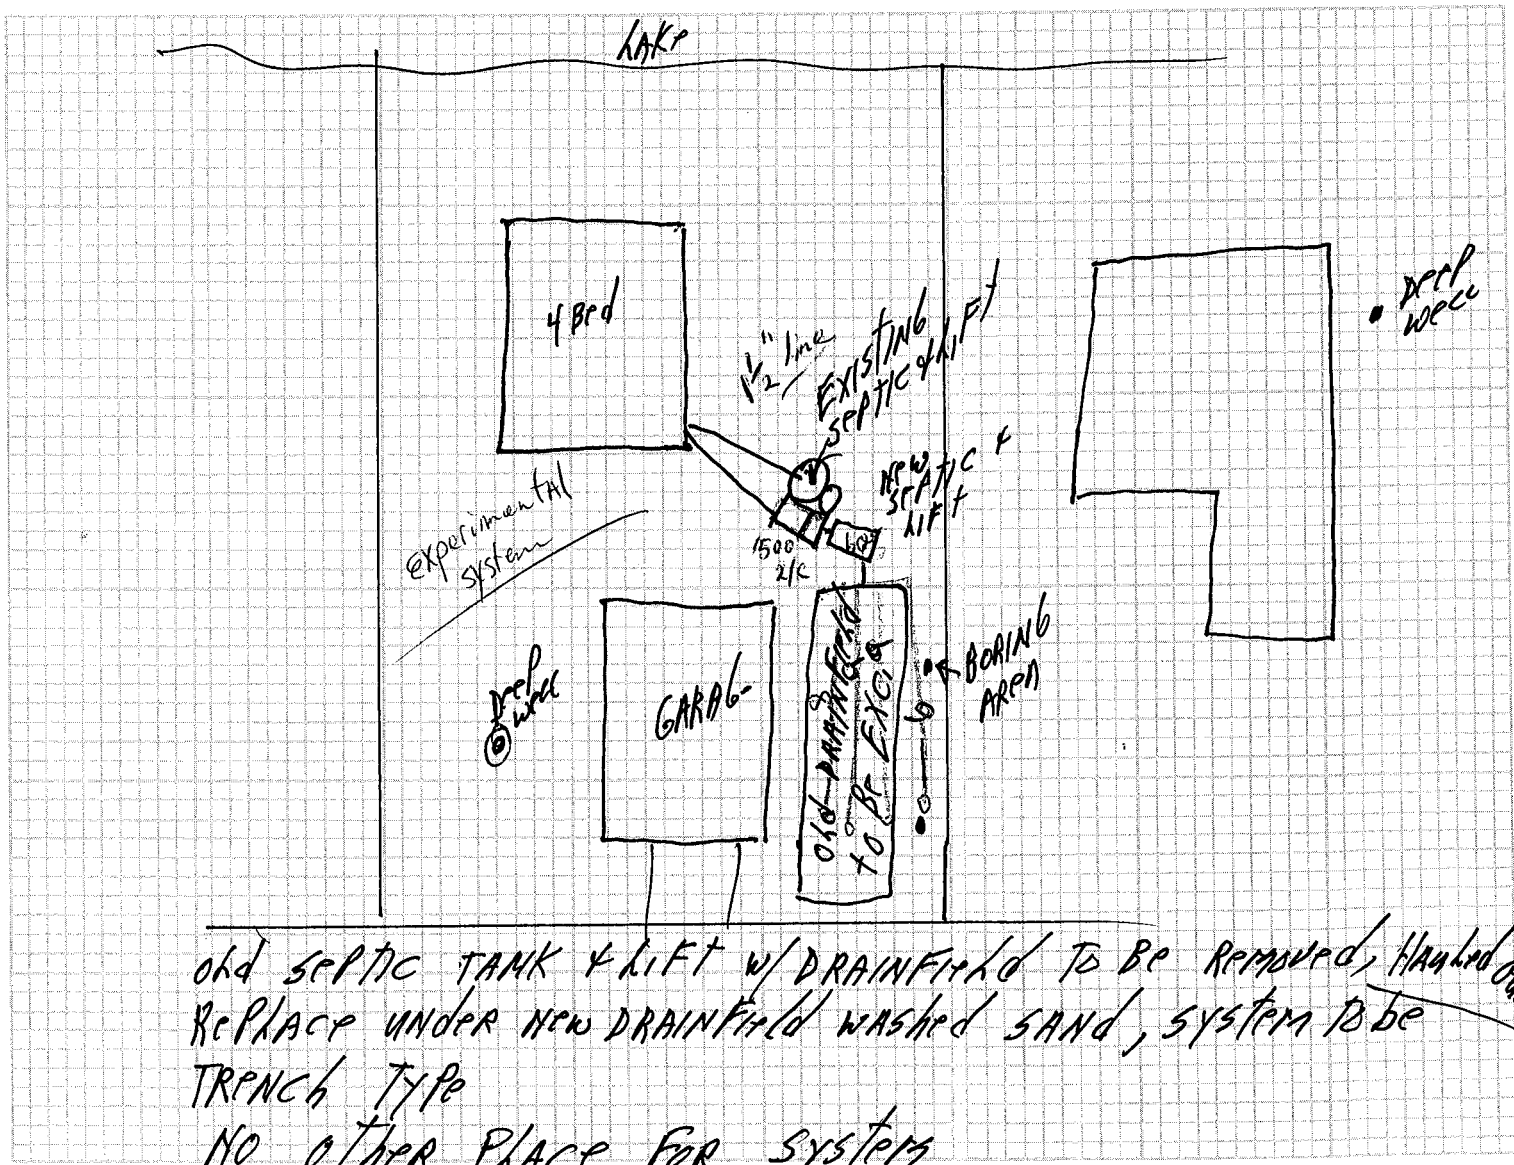 LAKE
4 Bed
1 1/2" line
EXISTING
SEPTIC & LIFT
NEW
SEPTIC &
LIFT
1500
2/C
600
experimental
system
Deep
well
Deep
well
GARAG-
OLD DRAINFIELD
TO BE EXC.
BORING
AREA
OLD SEPTIC TANK & LIFT W/ DRAINFIELD TO BE REMOVED, HAULED OUT
REPLACE UNDER NEW DRAINFIELD WASHED SAND, SYSTEM TO be
TRENCH TYPE
NO OTHER PLACE FOR SYSTEM